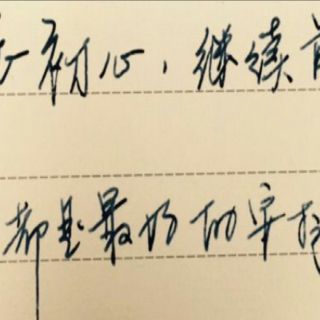 初心,继续
都是最好的安排